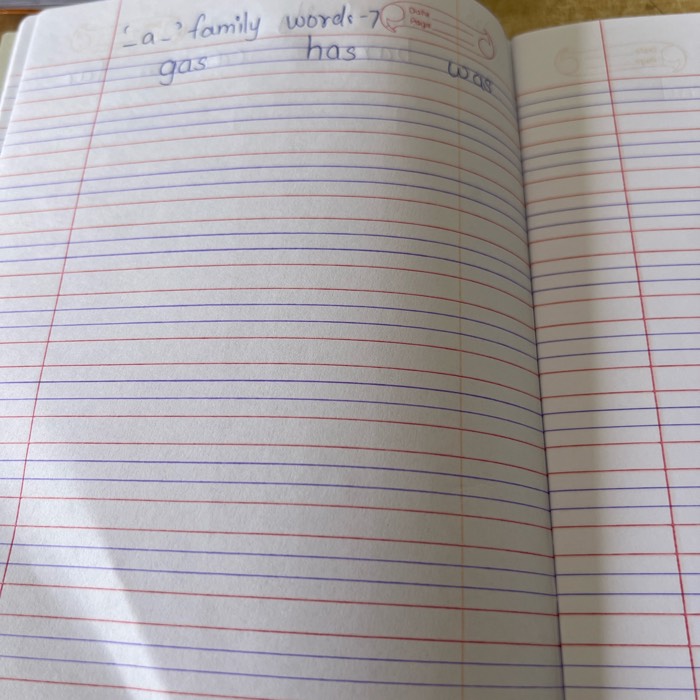 '-a-' family words-7
Date
Page
gas has was